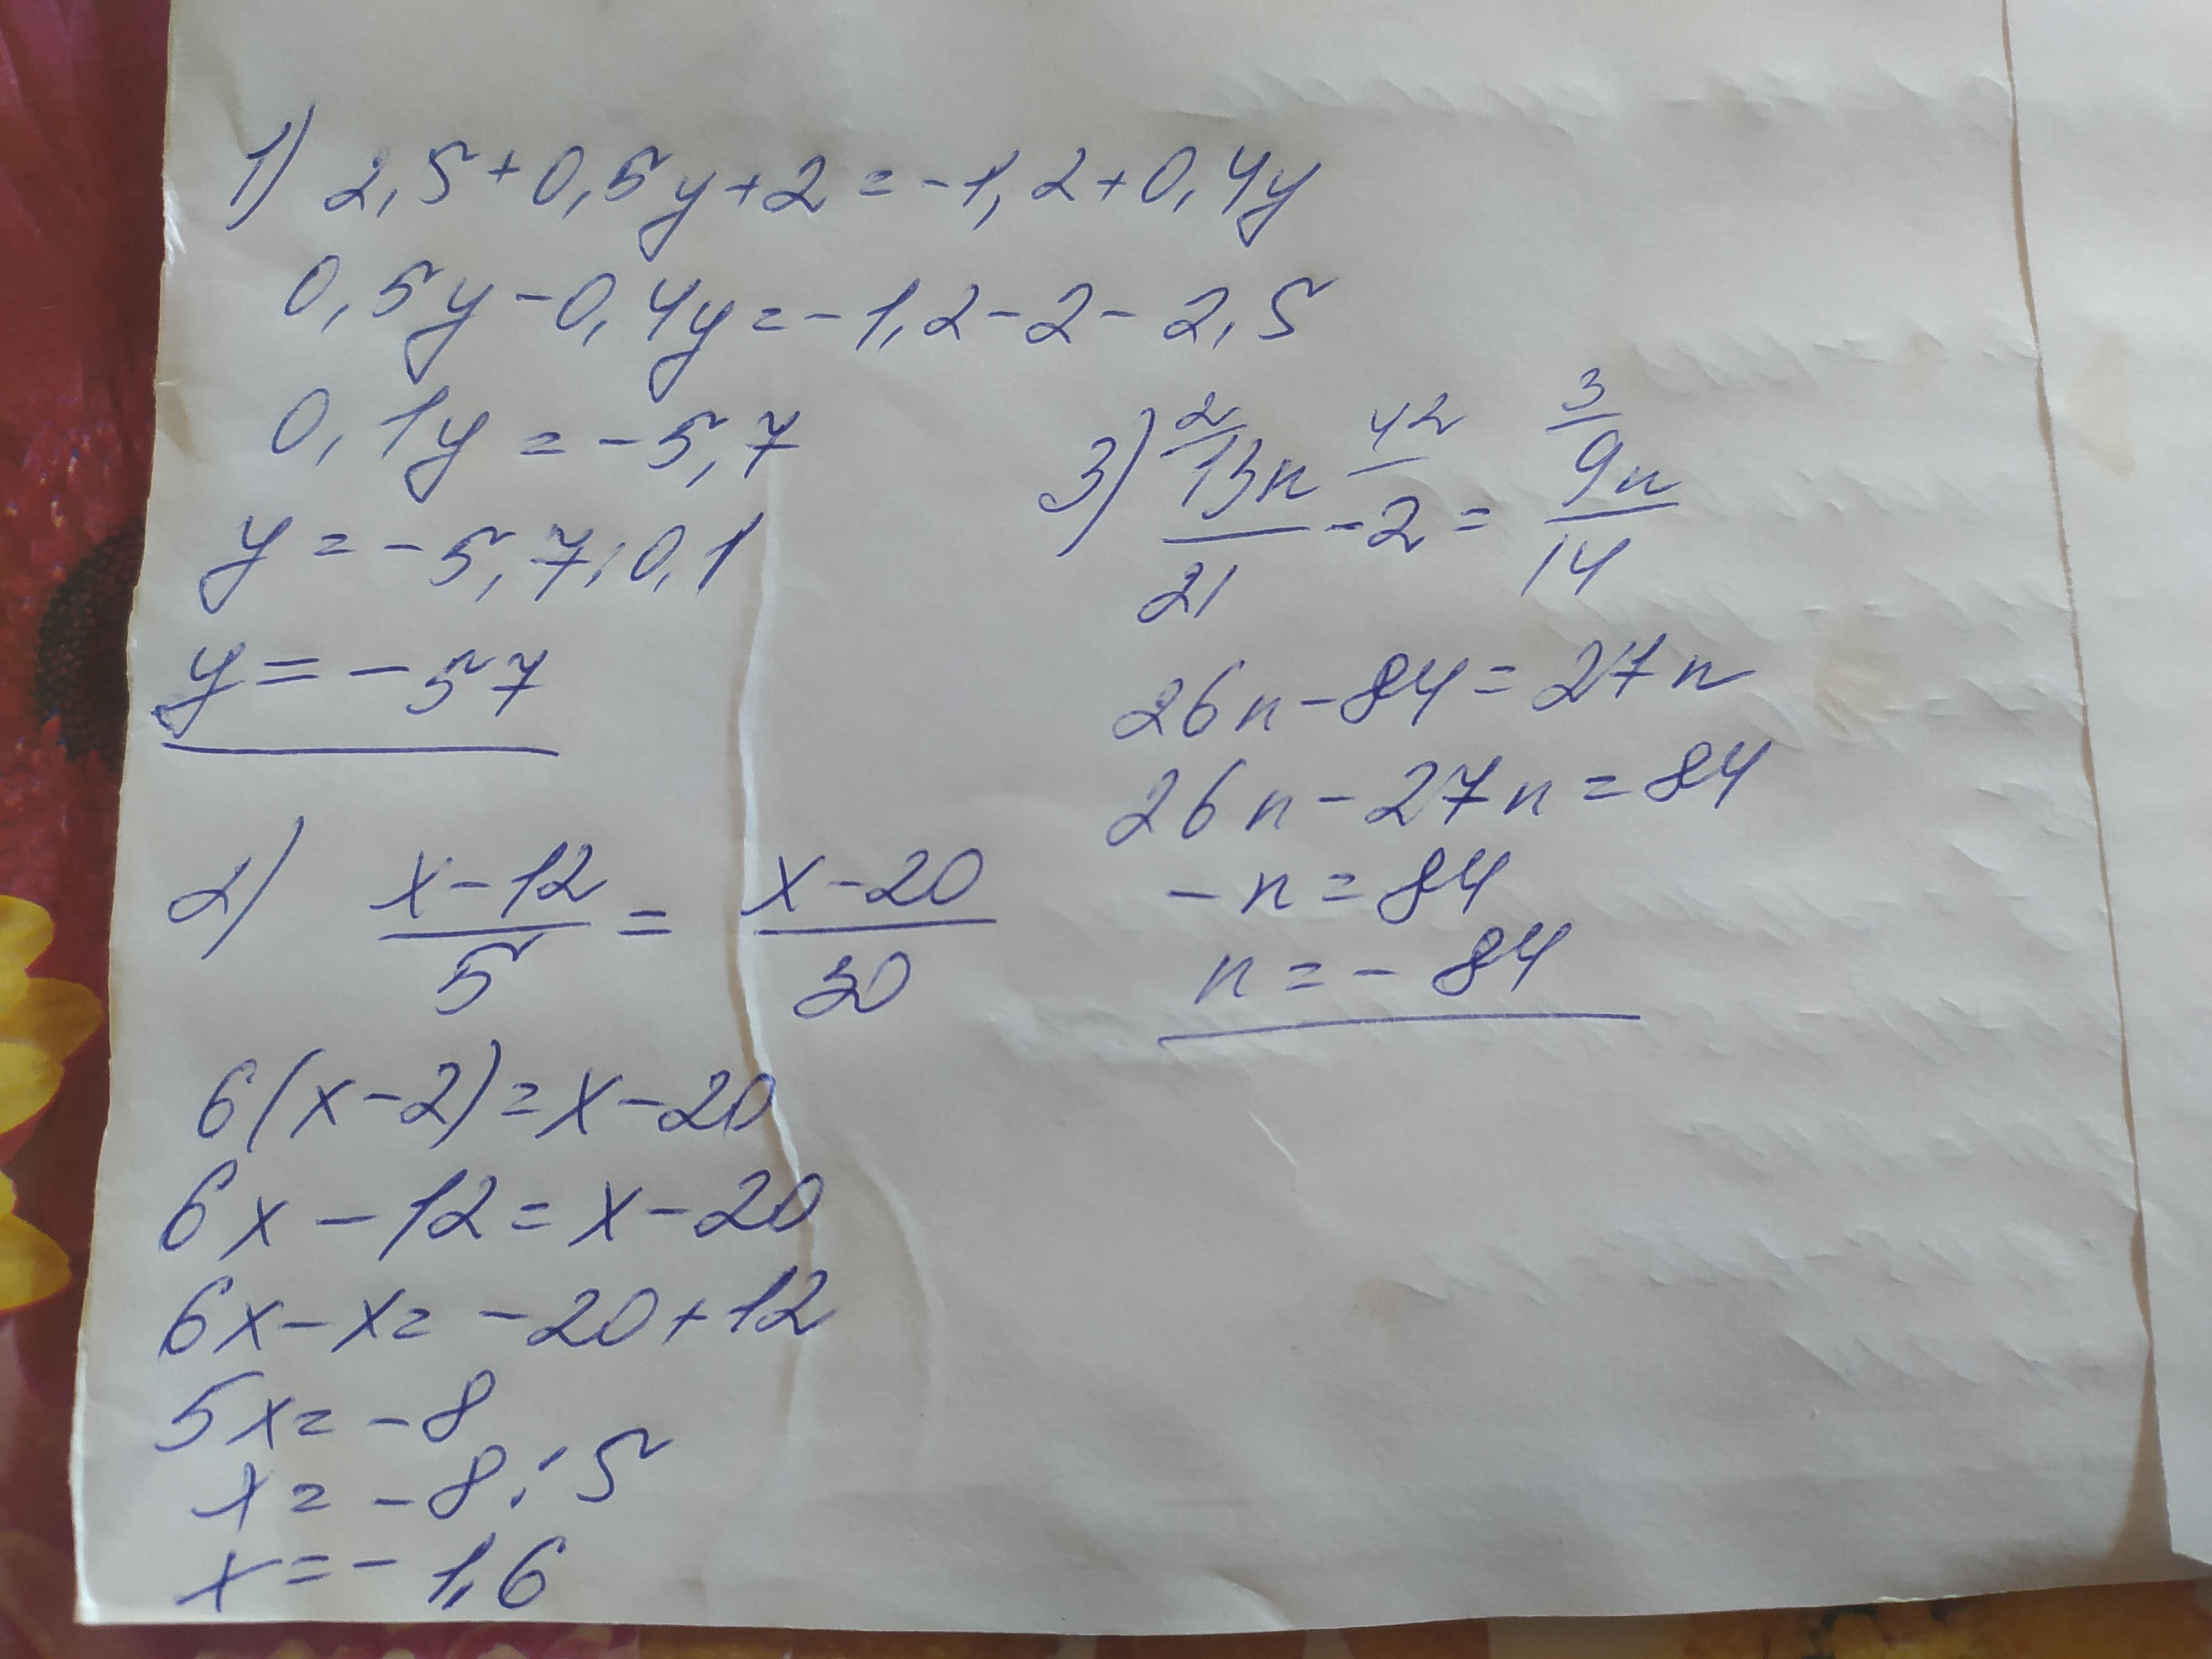 1) 2,5+0,5y+2=-1,2+0,4y
0,5y-0,4y=-1,2-2-2,5
0,1y=-5,7
y=-5,7:0,1
y=-57
2) x-12/5 = x-20/30
6(x-2)=x-20
6x-12=x-20
6x-x=-20+12
5x=-8
x=-8:5
x=-1,6
2 42 3
3) 13n/21 -2= 9n/14
26n-84=27n
26n-27n=84
-n=84
n=-84